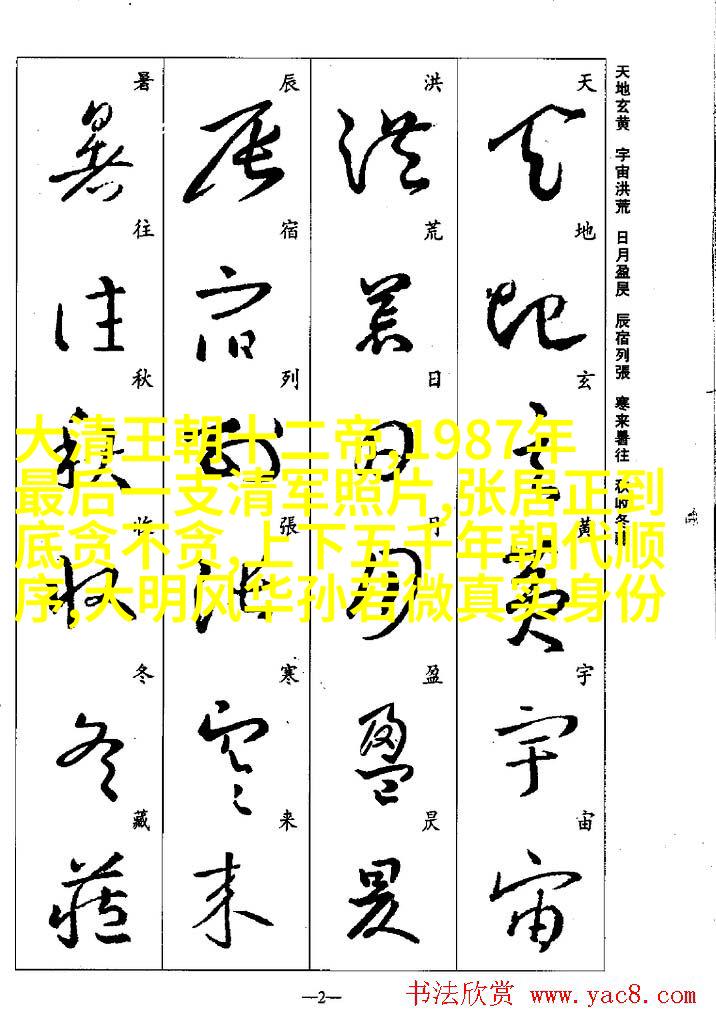 天地玄黄 宇宙洪荒 日月盈昃 辰宿列張 寒来暑往 秋收冬
天地玄黄宇宙
洪荒日月盈昃
辰宿列張寒来
暑往秋收冬藏
大清王朝十二帝,1987年
最后一支清军照片,张居正到
底贪不贪,上下五千年朝代顺
序,大明风华孙若微真实身份
—2—
书法欣赏 www.yac8.com